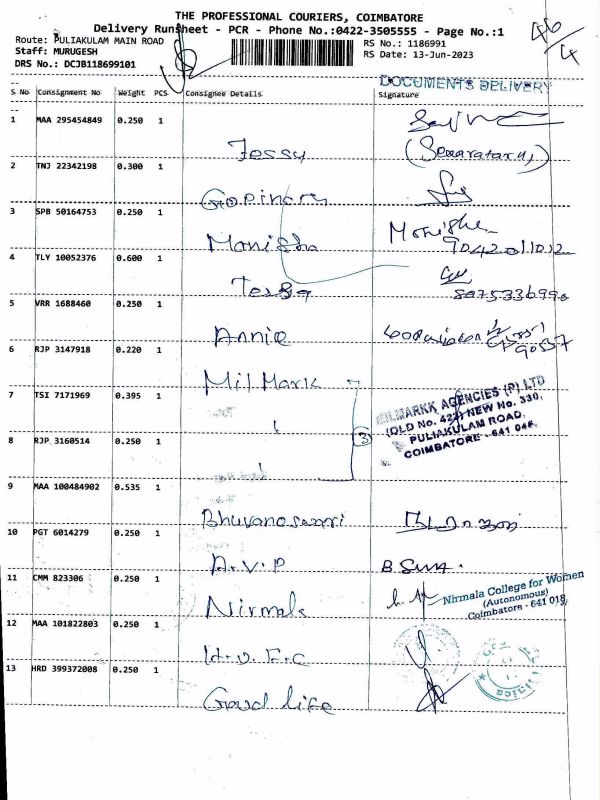 THE PROFESSIONAL COURIERS, COIMBATORE
Delivery Runsheet - PCR - Phone No.:0422-3505555 - Page No.:1
Route: PULIAKULAM MAIN ROAD
RS No.: 1186991
Staff: MURUGESH
RS Date: 13-Jun-2023
DRS No.: DCJB118699101
46/4
DOCUMENTS DELIVERY
S No Consignment No Weight PCS Consignee Details Signature
1 MAA 295454849 0.250 1 Jessy
2 TNJ 22342198 0.300 1
3 SPB 50164753 0.250 1 Monisha Monisha
9042011012
4 TLY 10052376 0.600 1
8075336990
5 VRR 1688460 0.250 1 Annie
6 RJP 3147918 0.220 1 Mil Mark
7 TSI 7171969 0.395 1
8 RJP 3160514 0.250 1
3
MILMARKK AGENCIES (P) LTD
(OLD No. 422) NEW No. 330,
PULIAKULAM ROAD,
COIMBATORE - 641 045.
9 MAA 100484902 0.535 1
10 PGT 6014279 0.250 1 A.V.P
11 CMM 823306 0.250 1 Nirmala
Nirmala College for Women
(Autonomous)
Coimbatore - 641 018
12 MAA 101822803 0.250 1
13 HRD 399372008 0.250 1 Good life